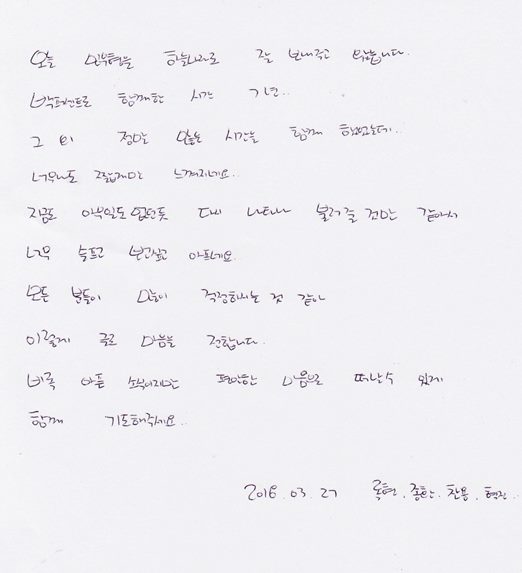 오늘 민우형을 하늘나라로 잘 보내주고 왔습니다.
백퍼센트로 함께한 시간 7년..
그 외 정말 많은 시간을 함께 했었는데..
너무나도 짧게만 느껴지네요..
지금도 아무일도 없던듯 다시 나타나 불러줄 것만 같아서
너무 슬프고 보고싶고 아프네요..
모든 분들이 많이 걱정하시는 것 같아
이렇게 글로 마음을 전합니다..
비록 아픈 소식이지만 편안한 마음으로 떠날수 있게
함께 기도해주세요..
03. 27 록현, 종환, 찬용, 혁진..